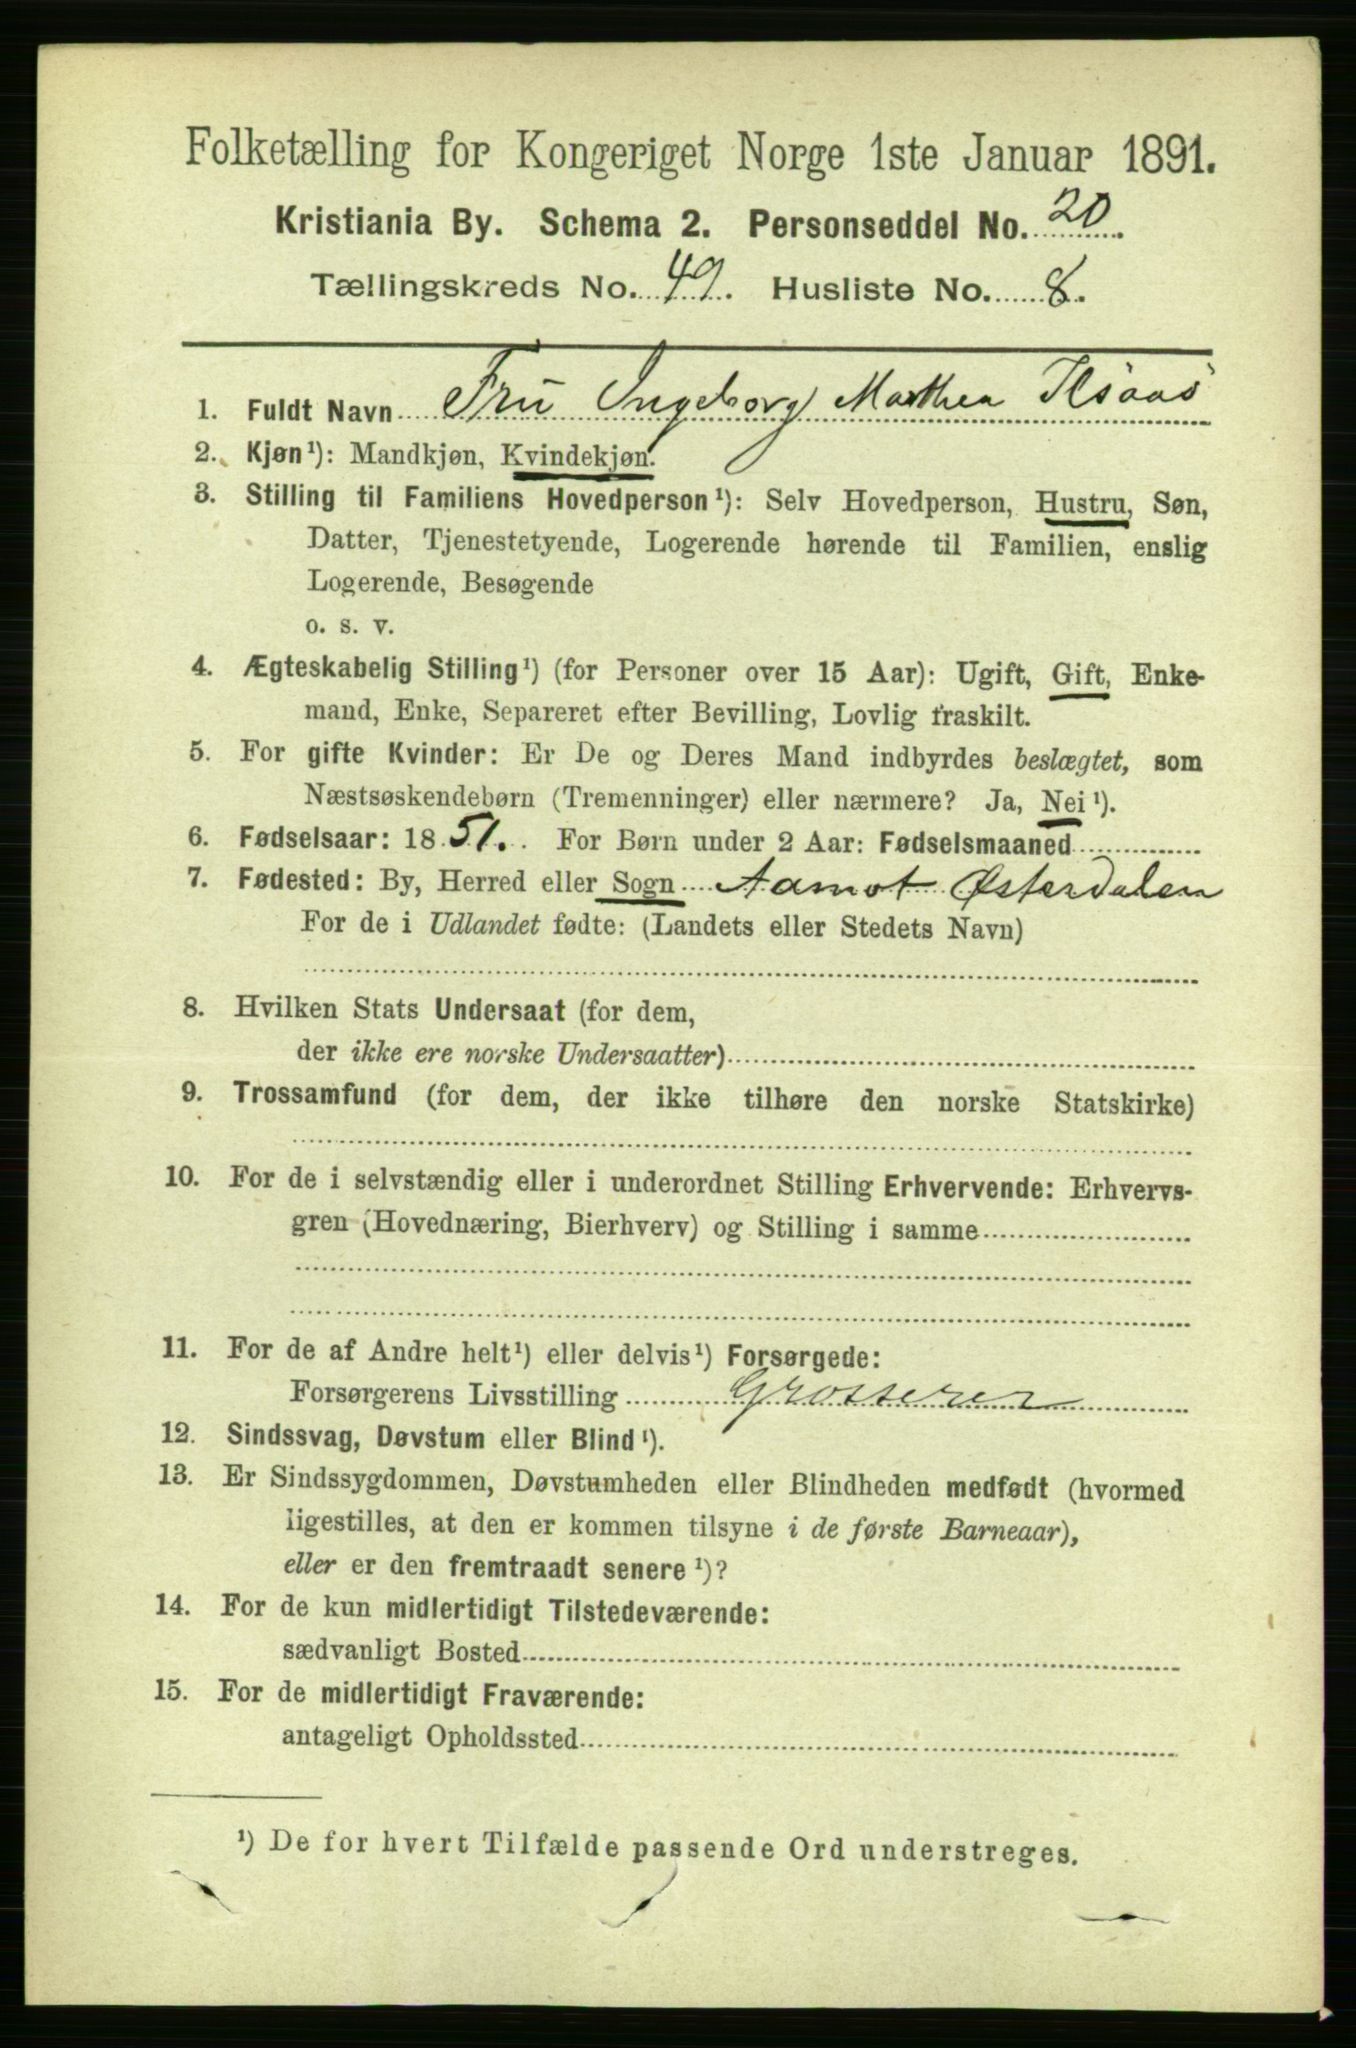 Folketælling for Kongeriget Norge 1ste Januar 1891.
Kristiania By. Schema 2. Personseddel No. 20.
Tællingskreds No. 49. Husliste No. 8.
1. Fuldt Navn Fru Ingeborg Marthea Ilsaas
2. Kjøn¹): Mandkjøn, Kvindekjøn.
3. Stilling til Familiens Hovedperson¹): Selv Hovedperson, Hustru, Søn,
Datter, Tjenestetyende, Logerende hørende til Familien, enslig
Logerende, Besøgende
o. s. v.
4. Ægteskabelig Stilling¹) (for Personer over 15 Aar): Ugift, Gift, Enke-
mand, Enke, Separeret efter Bevilling, Lovlig fraskilt.
5. For gifte Kvinder: Er De og Deres Mand indbyrdes beslægtet, som
Næstsøskendebørn (Tremenninger) eller nærmere? Ja, Nei¹).
6. Fødselsaar: 1851. For Børn under 2 Aar: Fødselsmaaned
7. Fødested: By, Herred eller Sogn Aamot Østerdalen
For de i Udlandet fødte: (Landets eller Stedets Navn)
8. Hvilken Stats Undersaat (for dem,
der ikke ere norske Undersaatter)
9. Trossamfund (for dem, der ikke tilhøre den norske Statskirke)
10. For de i selvstændig eller i underordnet Stilling Erhvervende: Erhvervs-
gren (Hovednæring, Bierhverv) og Stilling i samme
11. For de af Andre helt¹) eller delvis¹) Forsørgede:
Forsørgerens Livsstilling Grosserer
12. Sindssvag, Døvstum eller Blind¹).
13. Er Sindssygdommen, Døvstumheden eller Blindheden medfødt (hvormed
ligestilles, at den er kommen tilsyne i de første Barneaar),
eller er den fremtraadt senere¹)?
14. For de kun midlertidigt Tilstedeværende:
sædvanligt Bosted
15. For de midlertidigt Fraværende:
antageligt Opholdssted
¹) De for hvert Tilfælde passende Ord understreges.